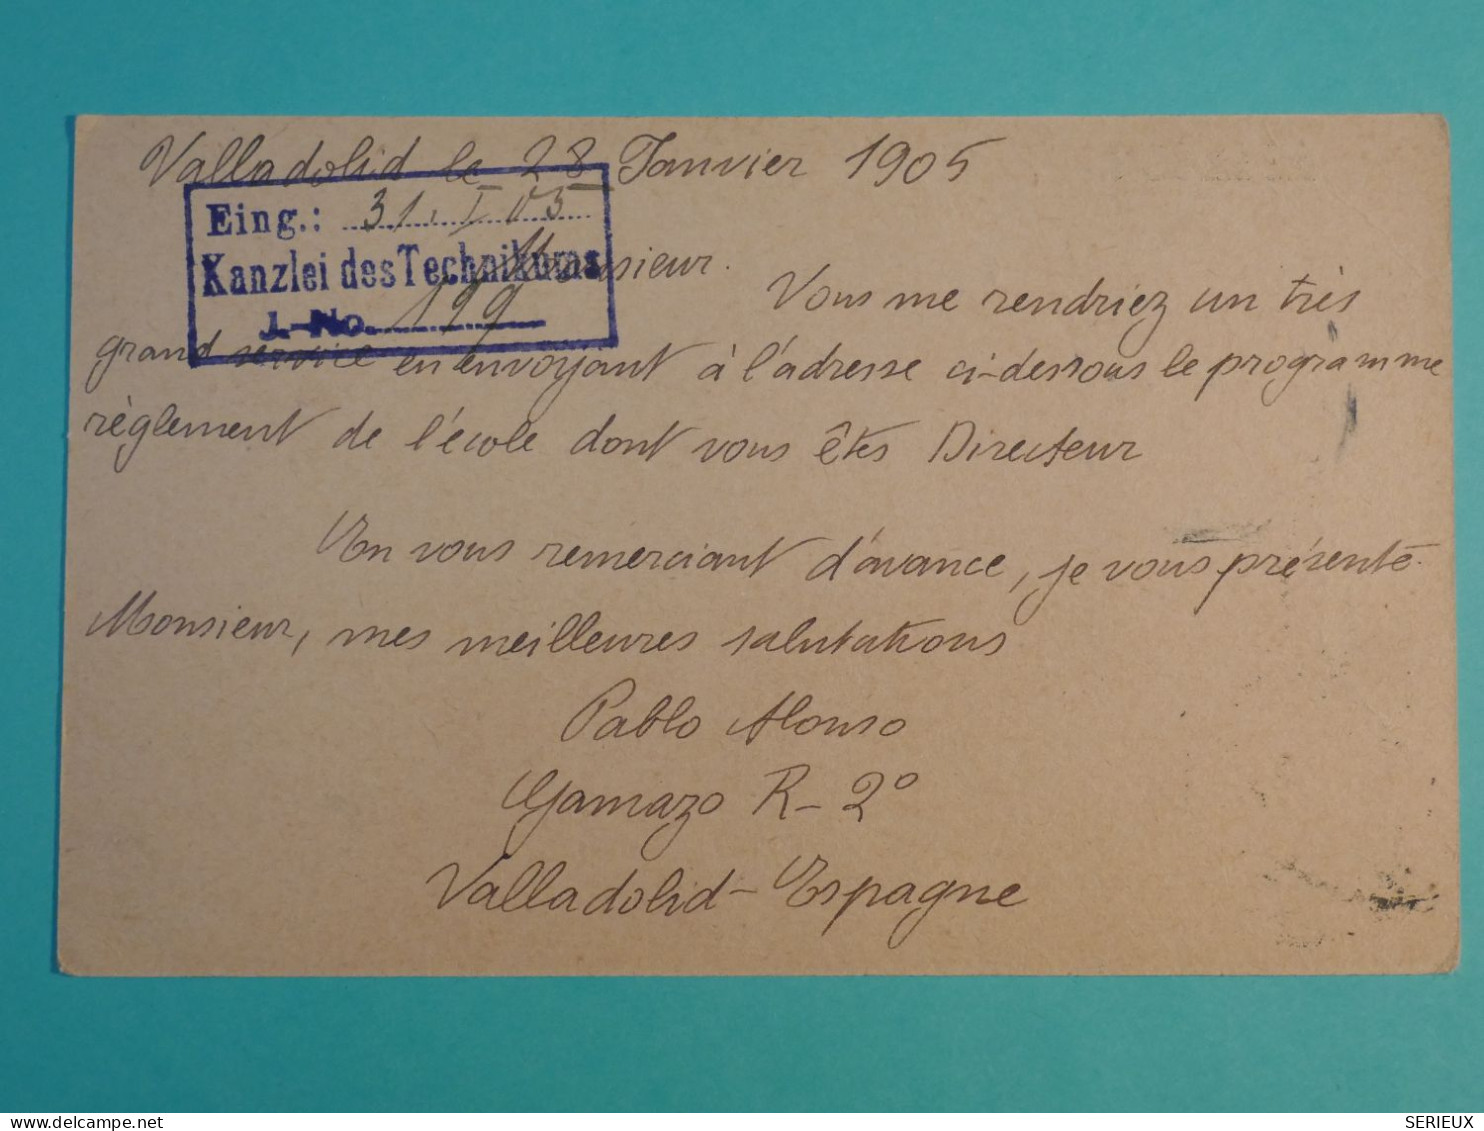 Valladolid le 28 Janvier 1905
Eing.: 31. I 05
Kanzlei des Technikums
J.-No. 199
Monsieur.
Vous me rendriez un très
grand service en envoyant à l'adresse ci-dessous le programme
règlement de l'école dont vous êtes Directeur
En vous remerciant d'avance, je vous présente
Monsieur, mes meilleures salutations
Pablo Alonso
Gamazo R-2º
Valladolid-Espagne
www.delcampe.net
SERIEUX